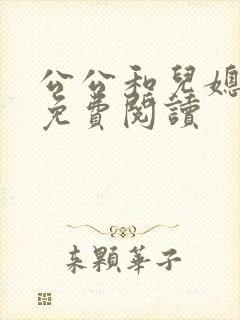 公公和兒媳
免費閱讀
來顆華子